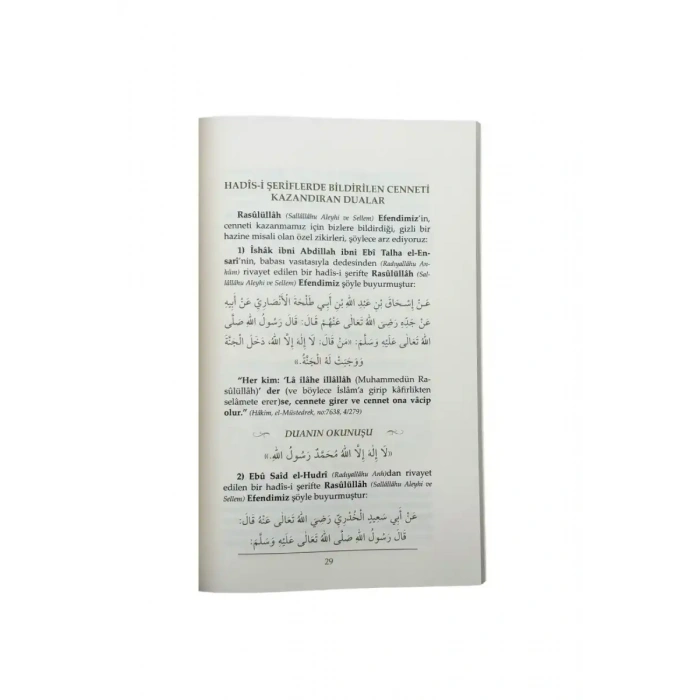 HADÎS-İ ŞERİFLERDE BİLDİRİLEN CENNETİ
KAZANDIRAN DUALAR
Rasûlüllâh (Sallâllâhu Aleyhi ve Sellem) Efendimiz'in,
cenneti kazanmamız için bizlere bildirdiği, gizli bir
hazine misali olan özel zikirleri, şöylece arz ediyoruz:
1) İshâk ibni Abdillah ibni Ebî Talha el-En-
sarî'nin, babası vasıtasıyla dedesinden (Radıyallâhu An-
hüm) rivayet edilen bir hadîs-i şerifte Rasûlüllâh (Sal-
lâllâhu Aleyhi ve Sellem) Efendimiz şöyle buyurmuştur:
عَنْ إِسْحَاقَ بْنِ عَبْدِ اللهِ بْنِ أَبِي طَلْحَةَ الْأَنْصَارِيِّ عَنْ أَبِيهِ
عَنْ جَدِّهِ رَضِيَ اللهُ تَعَالَى عَنْهُمْ قَالَ: قَالَ رَسُولُ اللهِ صَلَّى
اللهُ تَعَالَى عَلَيْهِ وَسَلَّمَ: «مَنْ قَالَ: لَا إِلَهَ إِلَّا اللهُ، دَخَلَ الْجَنَّةَ
وَوَجَبَتْ لَهُ الْجَنَّةُ.»
"Her kim: 'Lâ ilâhe illâllâh (Muhammedün Ra-
sûlüllâh)' der (ve böylece İslâm'a girip kâfirlikten
selâmete erer)se, cennete girer ve cennet ona vâcip
olur." (Hâkim, el-Müstedrek, no:7638, 4/279)
DUANIN OKUNUŞU
«لَا إِلَهَ إِلَّا اللهُ مُحَمَّدٌ رَسُولُ اللهِ.»
2) Ebû Saîd el-Hudrî (Radıyallâhu Anh)dan rivayet
edilen bir hadîs-i şerifte Rasûlüllâh (Sallâllâhu Aleyhi ve
Sellem) Efendimiz şöyle buyurmuştur:
عَنْ أَبِي سَعِيدٍ الْخُدْرِيِّ رَضِيَ اللهُ تَعَالَى عَنْهُ قَالَ:
قَالَ رَسُولُ اللهِ صَلَّى اللهُ تَعَالَى عَلَيْهِ وَسَلَّمَ:
29